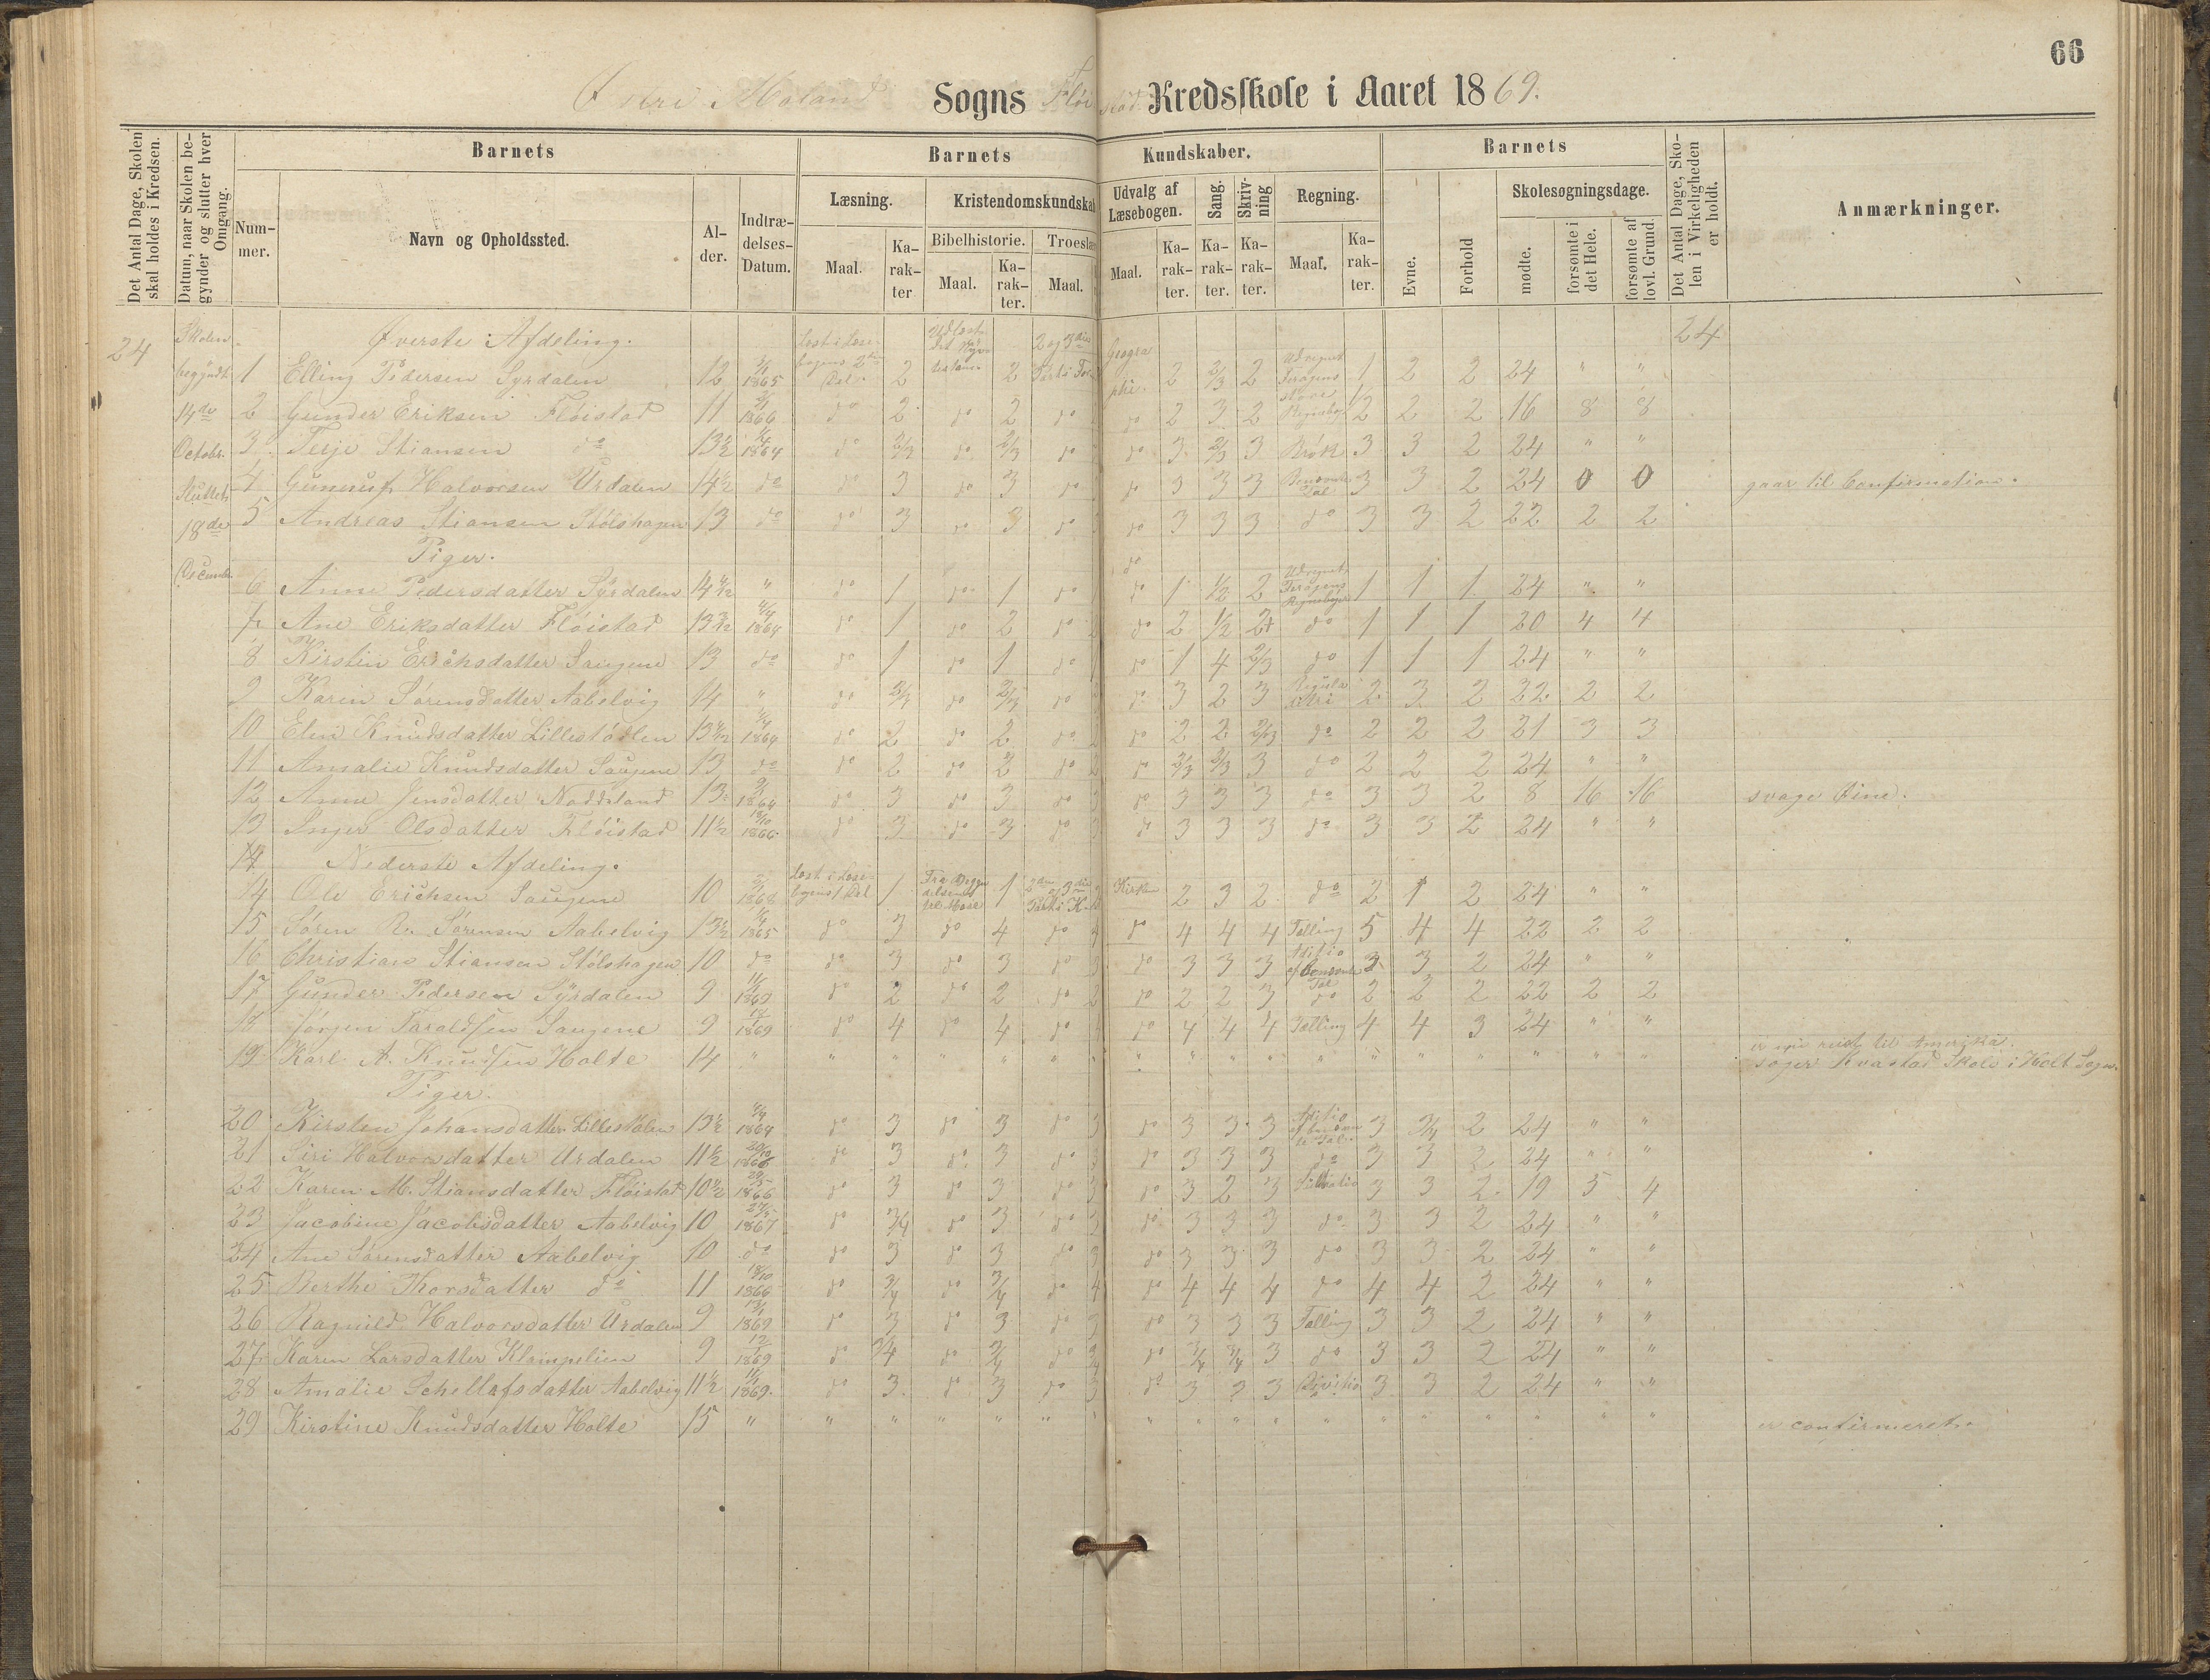 66
Østre Moland Sogns Fløistad Kredsskole i Aaret 1869.
Det Antal Dage, Skolen skal holdes i Kredsen.
Datum, naar Skolen begynder og slutter hver Omgang.
Barnets
Nummer.
Navn og Opholdssted.
Alder.
Indtrædelses-Datum.
Barnets Kundskaber.
Læsning.
Maal.
Karakter
Kristendomskundskab
Bibelhistorie.
Maal.
Karakter.
Troeslære
Maal.
Udvalg af Læsebogen.
Maal.
Karakter.
Sang.
Karakter.
Skrivning
Karakter.
Regning.
Maal.
Karakter.
Barnets
Evne.
Forhold
Skolesøgningsdage.
mødte.
forsømte i det Hele.
forsømte af lovl. Grund.
Det Antal Dage, Skolen i Virkeligheden er holdt.
Anmærkninger.
24 Skolen begyndt 14de Octobr. Sluttet 18de Decemb.
Øverste Afdeling. 24
1 Elling Pedersen Syrdalen 12 1865 2 2 Geographie. 2 2/3 2 1 2 2 24 " "
2 Gunder Eriksen Fløistad 11 1866 do 2 do 2 do do 2 3 2 2 2 2 16 8 8
3 Terje Stiansen do 13½ 1864 do 2/3 do 2/3 do do 3 2/3 3 Brøk 3 3 2 24 " "
4 Gunnuf Halvorsen Urdalen 14½ do do 3 do 3 do do 3 3 3 3 3 2 24 0 0 gaar til Confirmation.
5 Andreas Stiansen Stølshagen 13 do do 3 do 3 do do 3 3 3 do 3 3 2 22 2 2
Piger.
6 Anne Pedersdatter Syrdalen 14½ " do 1 do 1 do do 1 1/2 2 1 1 1 24 " "
7 Ane Eriksdatter Fløistad 13½ 1864 do 1 do 2 do do 2 1/2 2 do 1 1 1 20 4 4
8 Kirstin Erichsdatter Saugene 13 do do 1 do 1 do do 1 4 2/3 do 1 1 1 24 " "
9 Karen Sørensdatter Aabelvig 14 " do 2/3 do 2/3 do do 3 2 3 2 3 2 22 2 2
10 Elen Knudsdatter Lillestølen 13½ 1864 do 2 do 2 do do 2 2 2/3 do 2 2 2 21 3 3
11 Amalie Knudsdatter Saugene 13 do do 2 do 2 do 2 do 2/3 2/3 3 do 2 2 2 24 " "
12 Anne Jensdatter Noddeland 13 1864 do 3 do 3 do do 3 3 3 do 3 3 2 8 16 16 svage Øine.
13 Inger Olsdatter Fløistad 11½ 1866 do 3 do 3 do do 3 3 3 do 3 3 2 24 " "
Nederste Afdeling.
14 Ole Erichsen Saugene 10 1868 1 1 2 3 2 do 2 1 2 24 " "
15 Søren R. Sørensen Aabelvig 13½ 1865 do 3 do 4 do 4 do 4 4 4 Tælling 5 4 4 22 2 2
16 Christian Stiansen Stølshagen 10 do do 3 do 3 do 3 do 3 3 3 3 3 2 24 " "
17 Gunder Pedersen Syrdalen 9 1869 do 2 do 2 do 2 do 2 2 3 do 2 2 2 22 2 2
18 Jørgen Taraldsen Saugene 9 1869 do 4 do 4 do 4 do 4 4 4 Tælling 4 4 3 24 " "
19 Karl A. Knudsen Holte 14 " " " " " " " " " " " " " " " " " søger Kvastad Skole i Holt Sogn.
Piger.
20 Kirsten Johansdatter Lillestølen 13½ 1864 do 3 do 3 do 3 do 3 3 3 3 3/4 2 24 " "
21 Siri Halvorsdatter Urdalen 11½ 1866 do 3 do 3 do 3 do 3 3 3 do 3 3 2 24 " "
22 Karen M. Stiansdatter Fløistad 10½ 1866 do 3 do 3 do 3 do 3 2 3 3 3 2 19 5 4
23 Jacobine Jacobsdatter Aabelvig 10 1867 do 3/4 do 3 do 3 do 3 3 3 do 3 3 2 24 " "
24 Ane Sørensdatter Aabelvig 10 do do 3 do 3 do 3 do 3 3 3 do 3 3 2 24 " "
25 Berthe Thorsdatter do 11 1866 do 3/4 do 3/4 do 4 do 4 4 4 do 4 4 2 24 " "
26 Ragnild Halvorsdatter Urdalen 9 1869 do 3 do 3 do 3 do 3 3 3 Tælling 3 3 2 24 " "
27 Karen Larsdatter Klimpelien 9 1869 do 3/4 do 3/4 do do 3/4 3/4 3 do 3 3 2 24 " "
28 Amalie Schellefsdatter Aabelvig 11½ 1869. do 3. do 3 do 3 do 3 3 3 Divitio 3 3 2 24 " "
29 Kirstine Knudsdatter Holte 15 " " " " " " " " " " " " " " " " " er confirmeret.